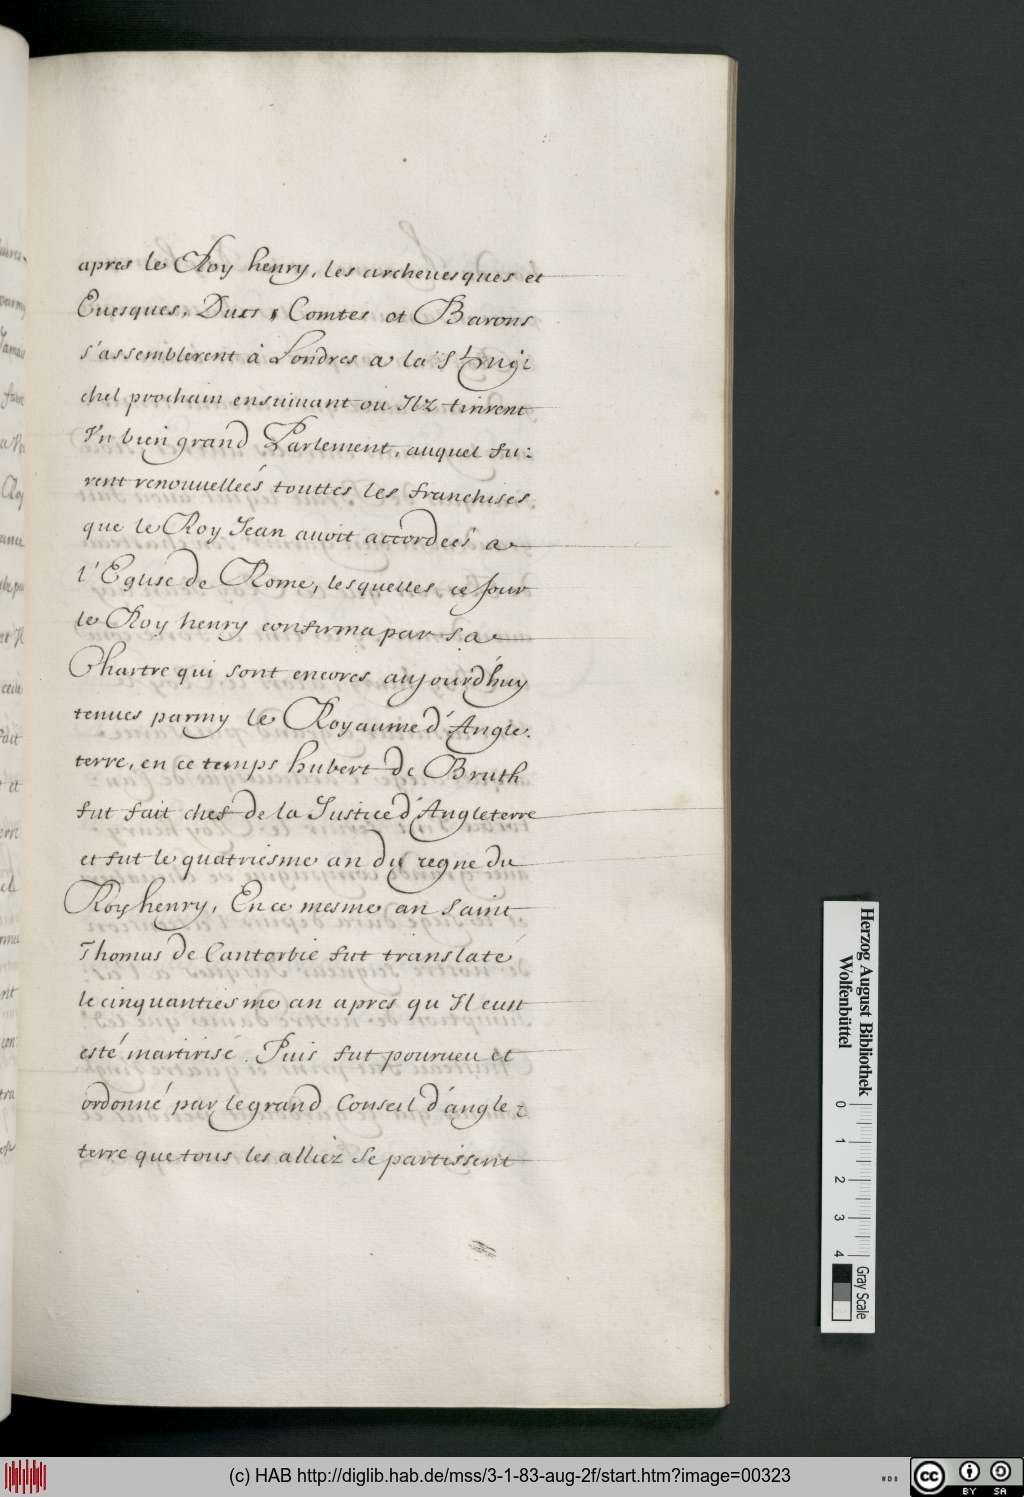 apres le Roy henry, les archeuesques et
Euesques, Ducs, Comtes et Barons
s'assemblerent à Londres a la St. Mi
chel prochain ensuiuant ou Ilz tinrent
Vn bien grand Parlement, auquel fu:
rent renouuelleés touttes les franchises
que le Roy Jean auoit accordeés a
l'Eglise de Rome, lesquelles, ce Jour
le Roy henry confirma par sa
Chartre qui sont encores aujourd'huy
tenues parmy le Royaume d'Angle.
terre, en ce temps hubert de Bruth
fut fait chef de la Justice d'Angleterre
et fut le quatriesme an du regne du
Roy henry, En ce mesme an saint
Thomas de Cantorbie fut translaté
le cinquantiesme an apres qu Il eust
esté martirisé. Puis fut pourueu et
ordonné par le grand Conseil d'angle:
terre que tous les alliez se partissent
Herzog August Bibliothek
Wolfenbüttel
0 1 2 3 4
Gray Scale
(c) HAB http://diglib.hab.de/mss/3-1-83-aug-2f/start.htm?image=00323
WDB
cc
BY SA